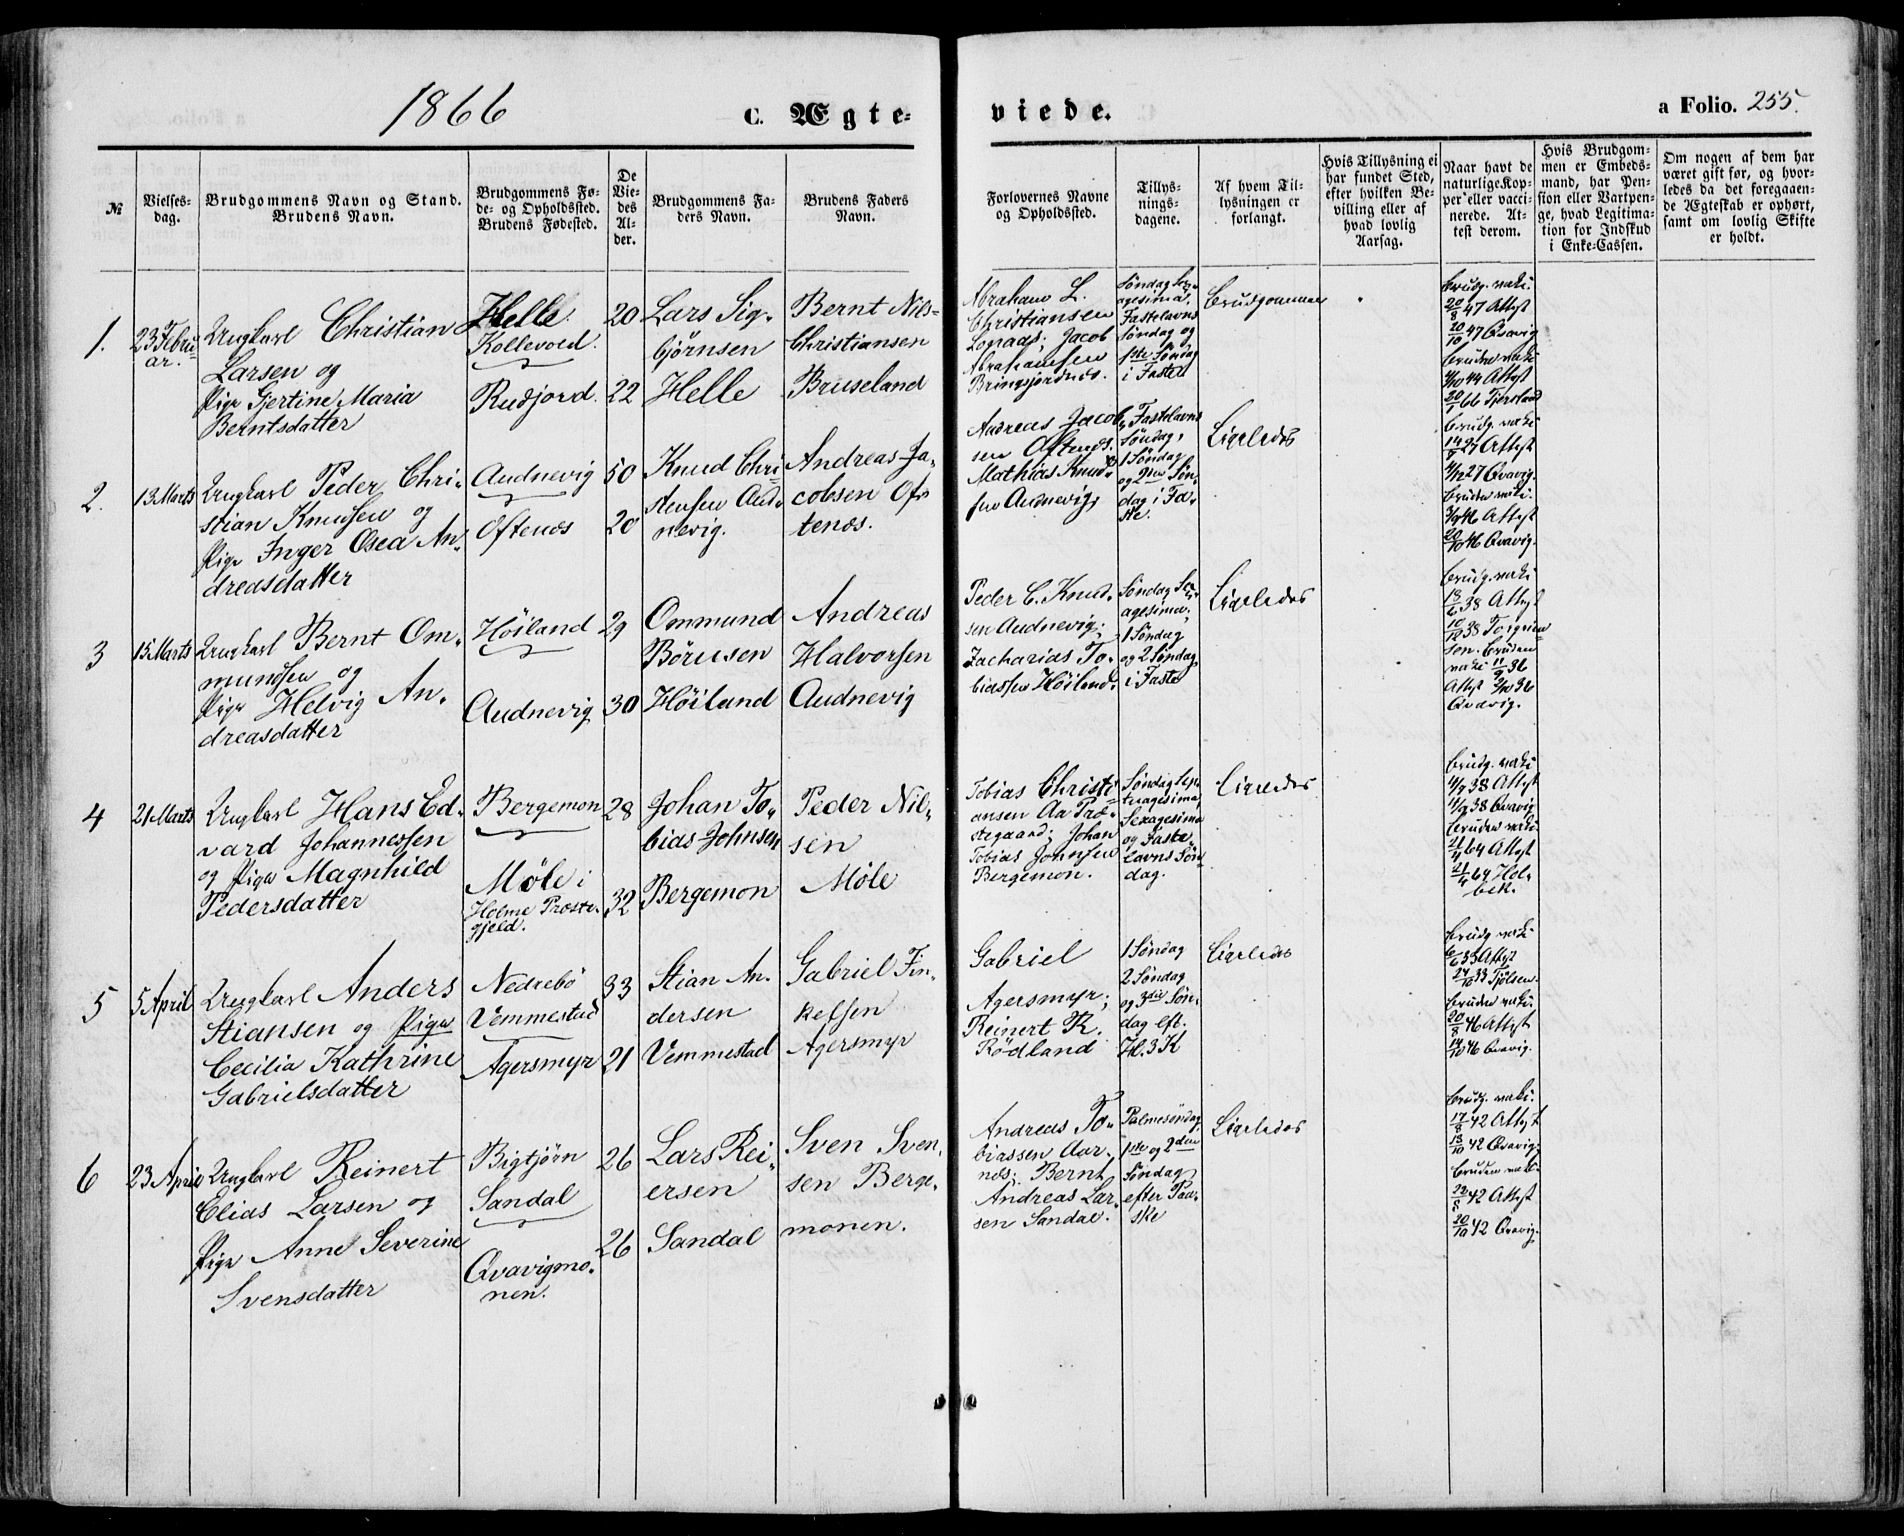 1866
C. Ægte-
viede.
a Folio. 255.
№
Vielses-
dag.
Brudgommens Navn og Stand.
Brudens Navn.
Brudgommens Fø-
de- og Opholdssted.
Brudens Fødested.
De
Vie-
des
Al-
der.
Brudgommens Fa-
ders Navn.
Brudens Faders
Navn.
Forlovernes Navne
og Opholdssted.
Tillys-
nings-
dagene.
Af hvem Til-
lysningen er
forlangt.
Hvis Tillysning ei
har fundet Sted,
efter hvilken Be-
villing eller af
hvad lovlig
Aarsag.
Naar havt de
naturlige Kop-
per eller vacci-
nerede. At-
test derom.
Hvis Brudgom-
men er Embeds-
mand, har Pen-
sion eller Vartpen-
ge, hvad Legitima-
tion for Indskud
i Enke-Cassen.
Om nogen af dem har
været gift før, og hvor-
ledes da det foregaaen-
de Ægteskab er ophørt,
samt om lovlig Skifte
er holdt.
1.
23 Febru
ar.
Ungkarl Christian
Larsen og
Pige Gjertine Maria
Berntsdatter
Helle.
Kollevold.
Rudjord.
20
22
Lars Sig-
bjørnsen
Helle
Bernt Nils-
Christiansen
Bruseland
Abraham L.
Christiansen
Jacob
Abrahamsen
Bringsjordnes.
Søndag Sex-
agesima,
Fastelavns
Søndag og
1ste Søndag
i Fasten
Brudgommen
Brudg. vakc.
20/8 47 Attest
20/10 47 Qvavig
Bruden vakc.
44 Attest
66
2.
13 Marts
Ungkarl Peder Chri-
stian Knudsen og
Pige Inger Osea An-
dreasdatter
Audnevig
Oftenes
50
20
Knud Chri-
stensen Aud-
nevig.
Andreas Ja-
cobsen Of-
tenes.
Andreas Jacob-
sen Oftenes.
Mathias Knud-
sen Audnevig,
Fastelavns
Søndag,
1 Søndag
og 2den Søn-
dag i Fa-
ste.
Ligeledes
Brudg. vakc.
27 Attest
27 Qvavig.
Bruden vakc.
46 Attest
20/10 46 Qvavig.
3
15 Marts
Ungkarl Bernt Om-
mundsen og
Pige Helvig An-
dreasdatter
Høiland
Audnevig
29
30
Ommund
Børusen
Høiland
Andreas
Halvorsen
Audnevig
Peder C. Knud-
sen Audnevig;
Zacharias To-
biassen Høiland.
Søndag Sex-
agesima,
1 Søndag
og 2 Søndag
i Faste
Ligeledes
Brudg. vakc.
18/6 38 Attest
38
Bruden
vakc. 36
Attest 36
Qvavig.
4
21 Marts
Ungkarl Hans Ed-
vard Johannessen
og Pige Magnhild
Pedersdatter
Bergemon
Møle i
Holme Præste-
gjeld.
28
32
Johan To-
bias Johnsen
Bergemon
Peder Nil-
sen
Møle
Tobias Christi-
ansen Aa Præ-
stegaard; Johan
Tobias Johnsen
Bergemon.
Søndag Sep-
tuagesima,
Sexagesima
og Faste-
lavns Søn-
dag.
Ligeledes
Brudg. vakc.
38 Attest
38 Qvavig
Bruden vakc.
21/4 64 Attest
21/4 64 Hol-
bek.
5
5 April
Ungkarl Anders
Stiansen og Pige
Cecilia Kathrine
Gabrielsdatter
Nedrebø
Vemmestad
Agersmyr
33
21
Stian An-
dersen
Vemmestad
Gabriel Fin-
kelsen
Agersmyr
Gabriel
Agersmyr;
Reinert R.
Rødland
1 Søndag
2 Søndag
og 3die Søn-
dag eft.
H. 3 K
Ligeledes
Brudg. vakc.
33 Attest
24/10 33 Tjølsen.
Bruden vakc.
20/8 46 Attest
14/10 46 Qvavig.
6
23 April
Ungkarl Reinert
Elias Larsen og
Pige Anne Severine
Svensdatter
Bigtjørn
Sandal
Qvavigmo-
nen.
26
26
Lars Rei-
ersen
Sandal
Sven Sven-
sen Berge-
monen.
Andreas To-
biassen Aar-
nes; Bernt
Andreas Lar-
sen Sandal.
Palmesøndag,
1ste og 2den
Søndag
efter Paa-
ske
Ligeledes
Brudg. vakc.
17/8 42 Attest
13/10 42 Qvavig
Bruden vakc.
22/8 42 Attest
20/10 42 Qvavig.